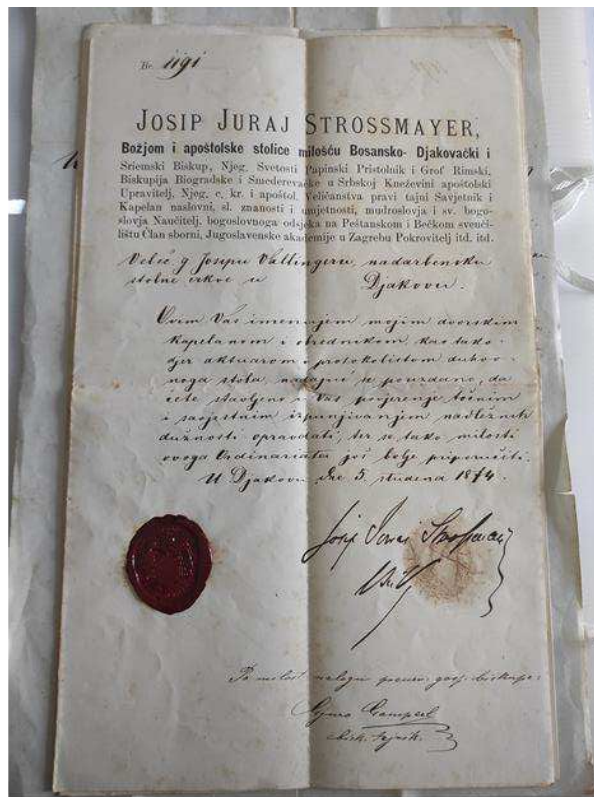 Br. 1191
JOSIP JURAJ STROSSMAYER,
Božjom i apoštolske stolice milošću Bosansko-Djakovački i
Sriemski Biskup, Njeg. Svetosti Papinski Pristolnik i Grof Rimski,
Biskupija Biogradske i Smederevačke u Srbskoj Kneževini apoštolski
Upravitelj, Njeg. c. kr. i apoštol. Veličanstva pravi tajni Savjetnik i
Kapelan naslovni, sl. znanosti i umjetnosti, mudroslovja i sv. bogo-
slovja Naučitelj, bogoslovnoga odsjeka na Peštanskom i Bečkom sveuči-
lištu Član sborni, Jugoslavenske akademije u Zagrebu Pokrovitelj itd. itd.
Velec. g Josipu Valtingeru, nadarbeniku
stolne crkve u Djakovu.
Ovim Vas imenujem mojim dvorskim
kapelanom i obrednikom, kao tako-
djer aktuarom i protokolistom duhov-
noga stola, nadajuć se pouzdano, da
ćete stavljeno u Vas povjerenje točnim
i savjestnim izpunjivanjem nadležnih
dužnosti opravdati, ter se tako milosti
ovoga Ordinariata još bolje preporučiti.
U Djakovu dne 5. studena 1874.
Josip Juraj Strossmayer
Po milost. nalogu preuzv. gosp. biskupa: